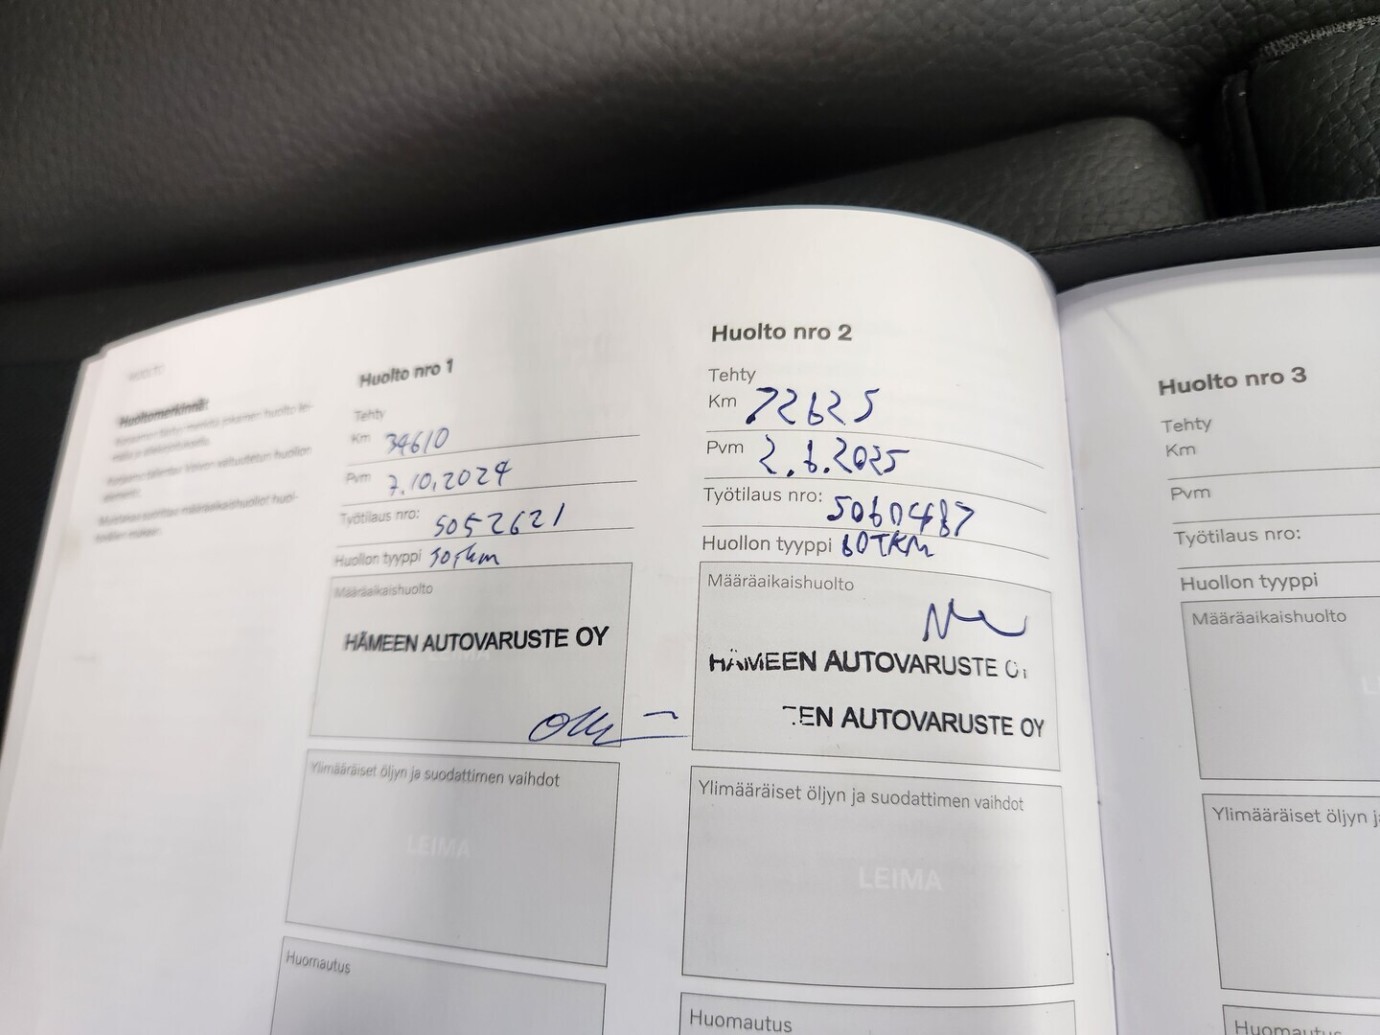 Huoltomerkinnä:
Huolto nro 1
Tehty
Km 34610
Pvm 7.10.2024
Työtilaus nro: 5052621
Huollon tyyppi 30Tkm
Määräaikaishuolto
HÄMEEN AUTOVARUSTE OY
Ylimääräiset öljyn ja suodattimen vaihdot
LEIMA
Huomautus
Huolto nro 2
Tehty
Km 72625
Pvm 2.6.2025
Työtilaus nro: 5060487
Huollon tyyppi 60TKM
Määräaikaishuolto
HÄMEEN AUTOVARUSTE OY
EN AUTOVARUSTE OY
Ylimääräiset öljyn ja suodattimen vaihdot
LEIMA
Huomautus
Huolto nro 3
Tehty
Km
Pvm
Työtilaus nro:
Huollon tyyppi
Määräaikaishuolto
LE
Ylimääräiset öljyn j
Huomautus